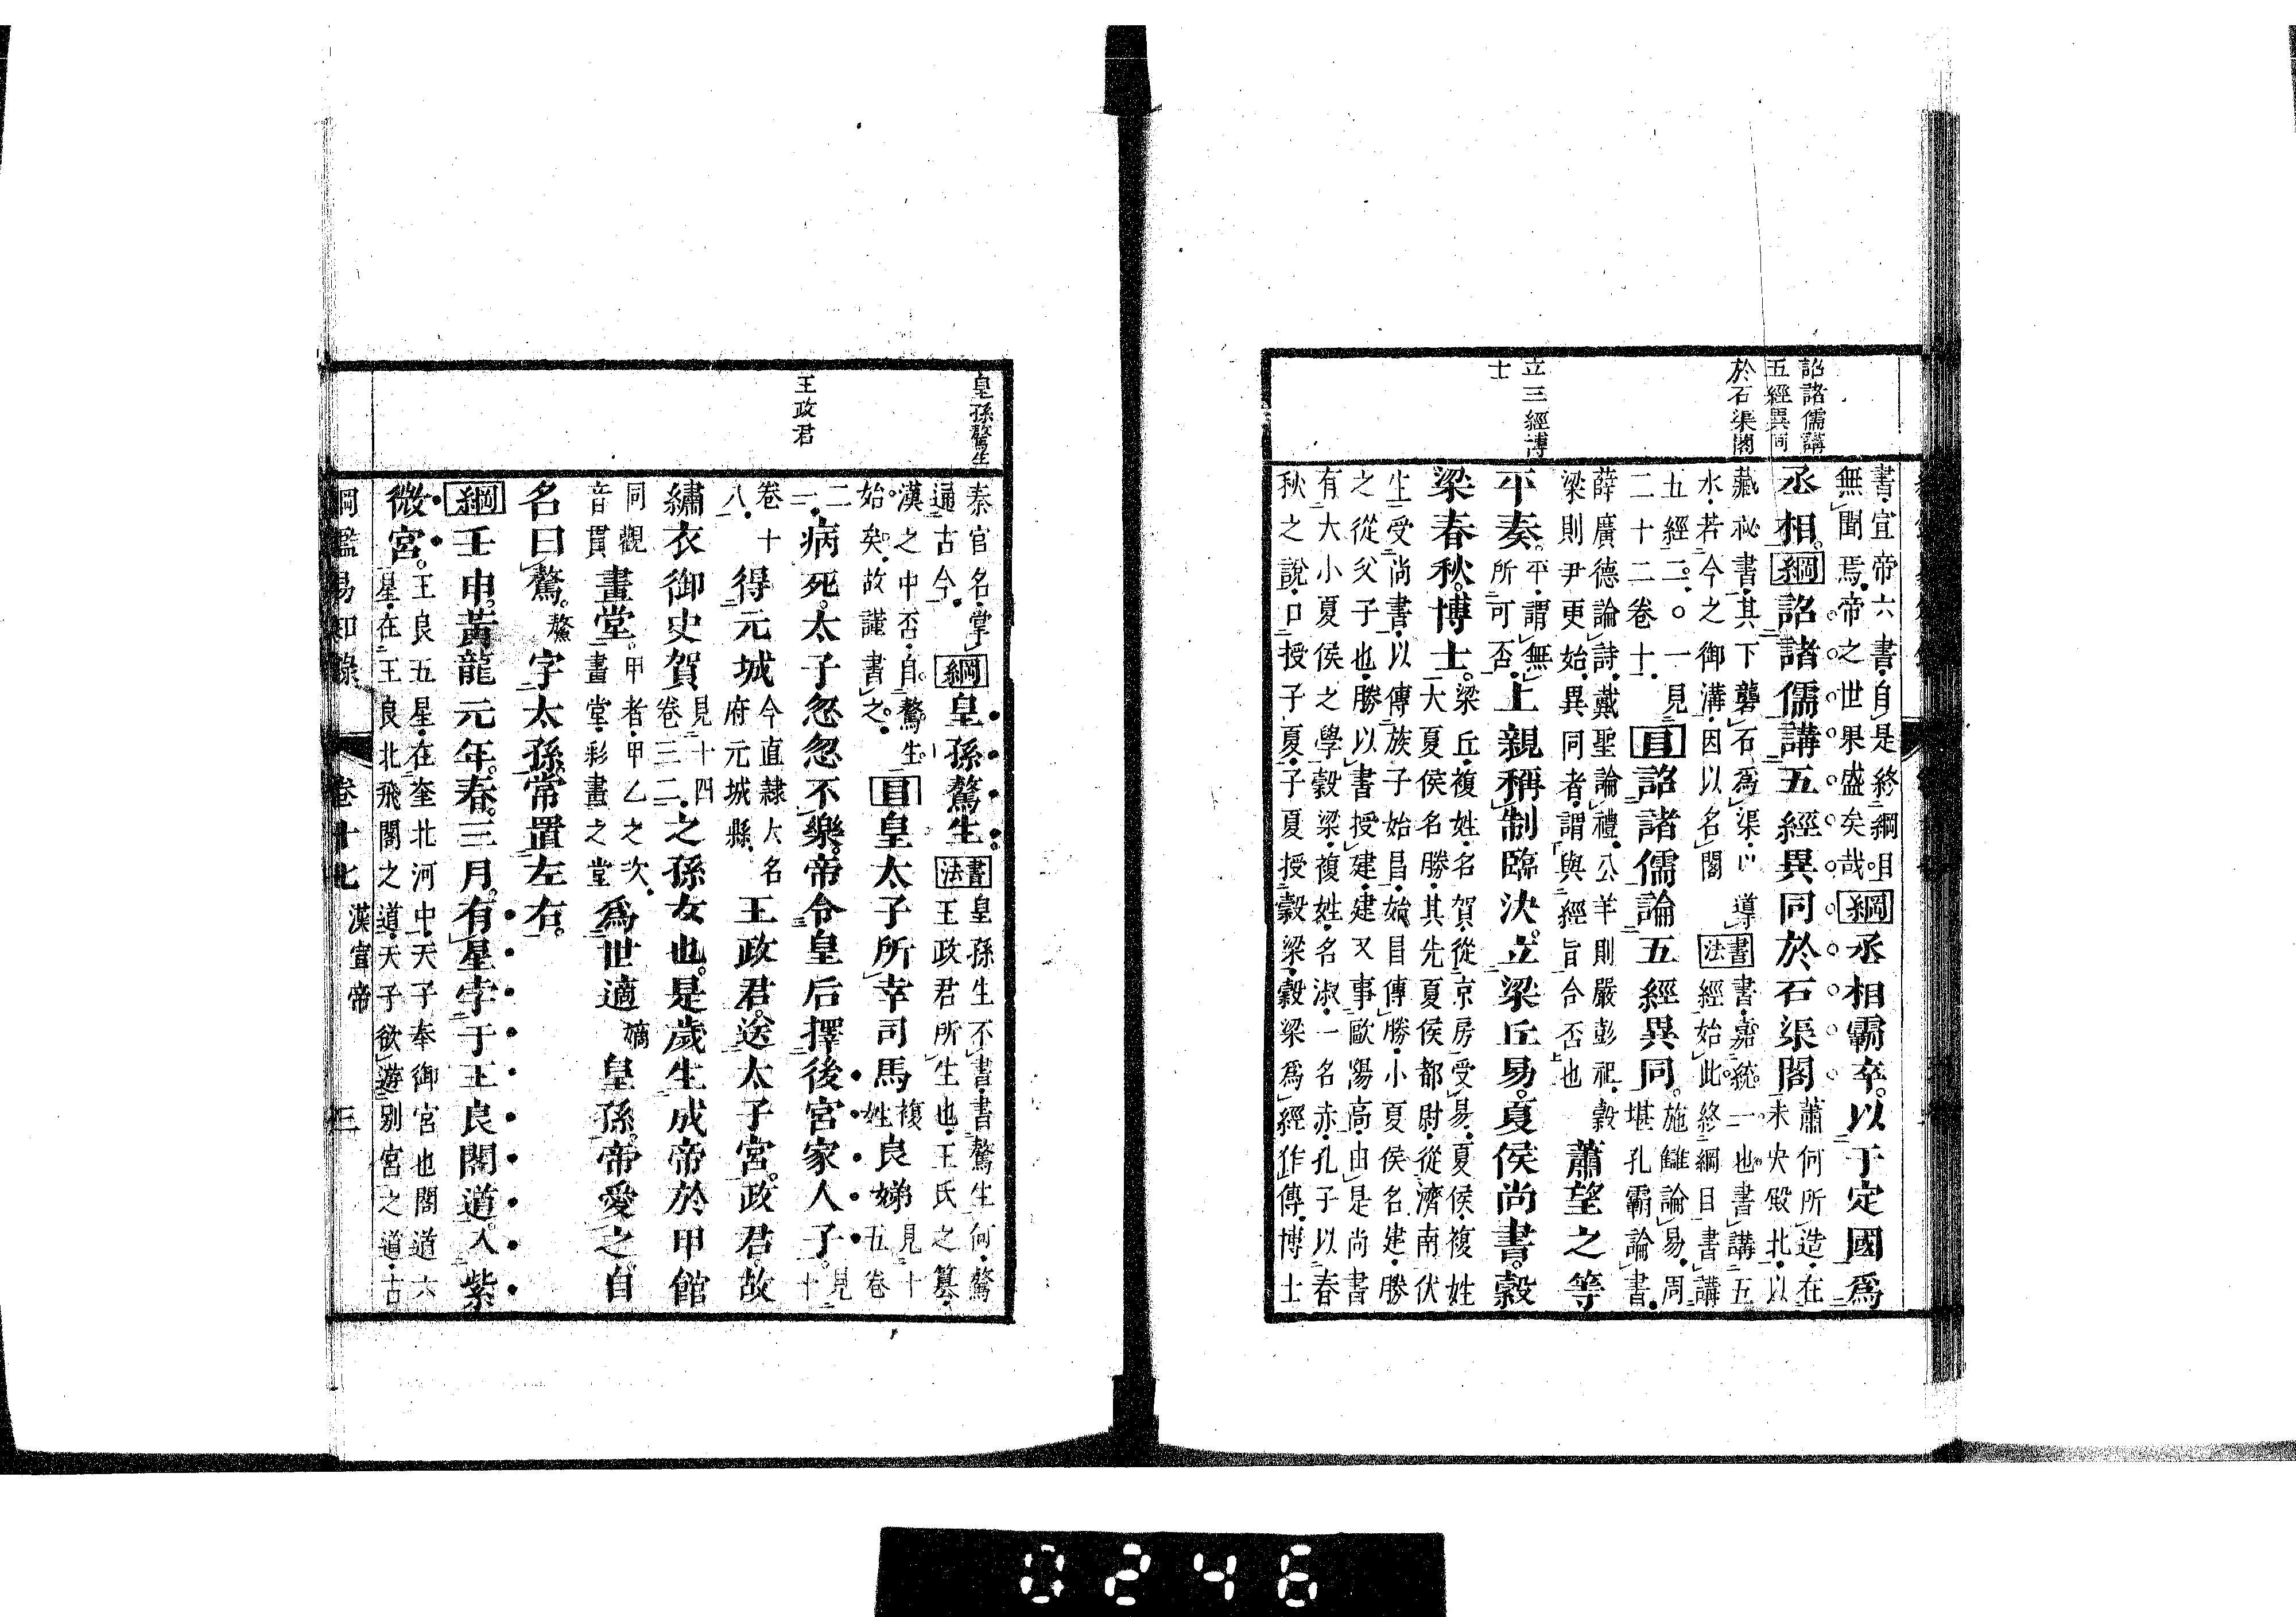 詔諸儒講
五經異同
於石渠閣
立三經博
士
書宣帝六書自是終綱目
無聞焉帝之世果盛矣哉綱丞相霸卒以于定國爲
丞相綱詔諸儒講五經異同於石渠閣蕭何所造在
未央殿北以
藏祕書其下礱石爲渠以導
水若今之御溝因以名閣書法書嘉統一也書講五
經始此終綱目書講
五經二○一見
二十二卷十目詔諸儒論五經異同施雠論易周
堪孔霸論書
薛廣德論詩戴聖論禮公羊則嚴彭祖穀
梁則尹更始異同者謂與經旨合否也蕭望之等
平奏平謂無
所可否上親稱制臨決立梁丘易夏侯尚書穀
梁春秋博士梁丘複姓名賀從京房受易夏侯複姓
大夏侯名勝其先夏侯都尉從濟南伏
生受尚書以傳族子始昌始昌傳勝小夏侯名建勝
之從父子也勝以書授建建又事歐陽高由是尚書
有大小夏侯之學穀梁複姓名淑一名赤孔子以春
秋之說口授子夏子夏授穀梁穀梁爲經作傳博士
皇孫驁生
王政君
秦官名掌
通古今綱皇孫驁生書法皇孫生不書書驁生何驁
王政君所生也王氏之篡
漢之中否自驁生
始矣故謹書之目皇太子所幸司馬複
姓良娣見十
五卷
二
一病死太子忽忽不樂帝令皇后擇後宮家人子見
十
卷十
八得元城今直隸大名
府元城縣王政君送太子宮政君故
繡衣御史賀見十四
卷三二之孫女也是歲生成帝於甲館
同觀
音貫畫堂甲者甲乙之次
畫堂彩畫之堂爲世適嫡皇孫帝愛之自
名曰驁驁字太孫常置左右
綱壬申黃龍元年春三月有星孛于王良閣道入紫
微宮王良五星在奎北河中天子奉御宮也閣道六
星在王良北飛閣之道天子欲遊别宮之道古
綱鑑易知錄 卷十七 漢宣帝 三
0246